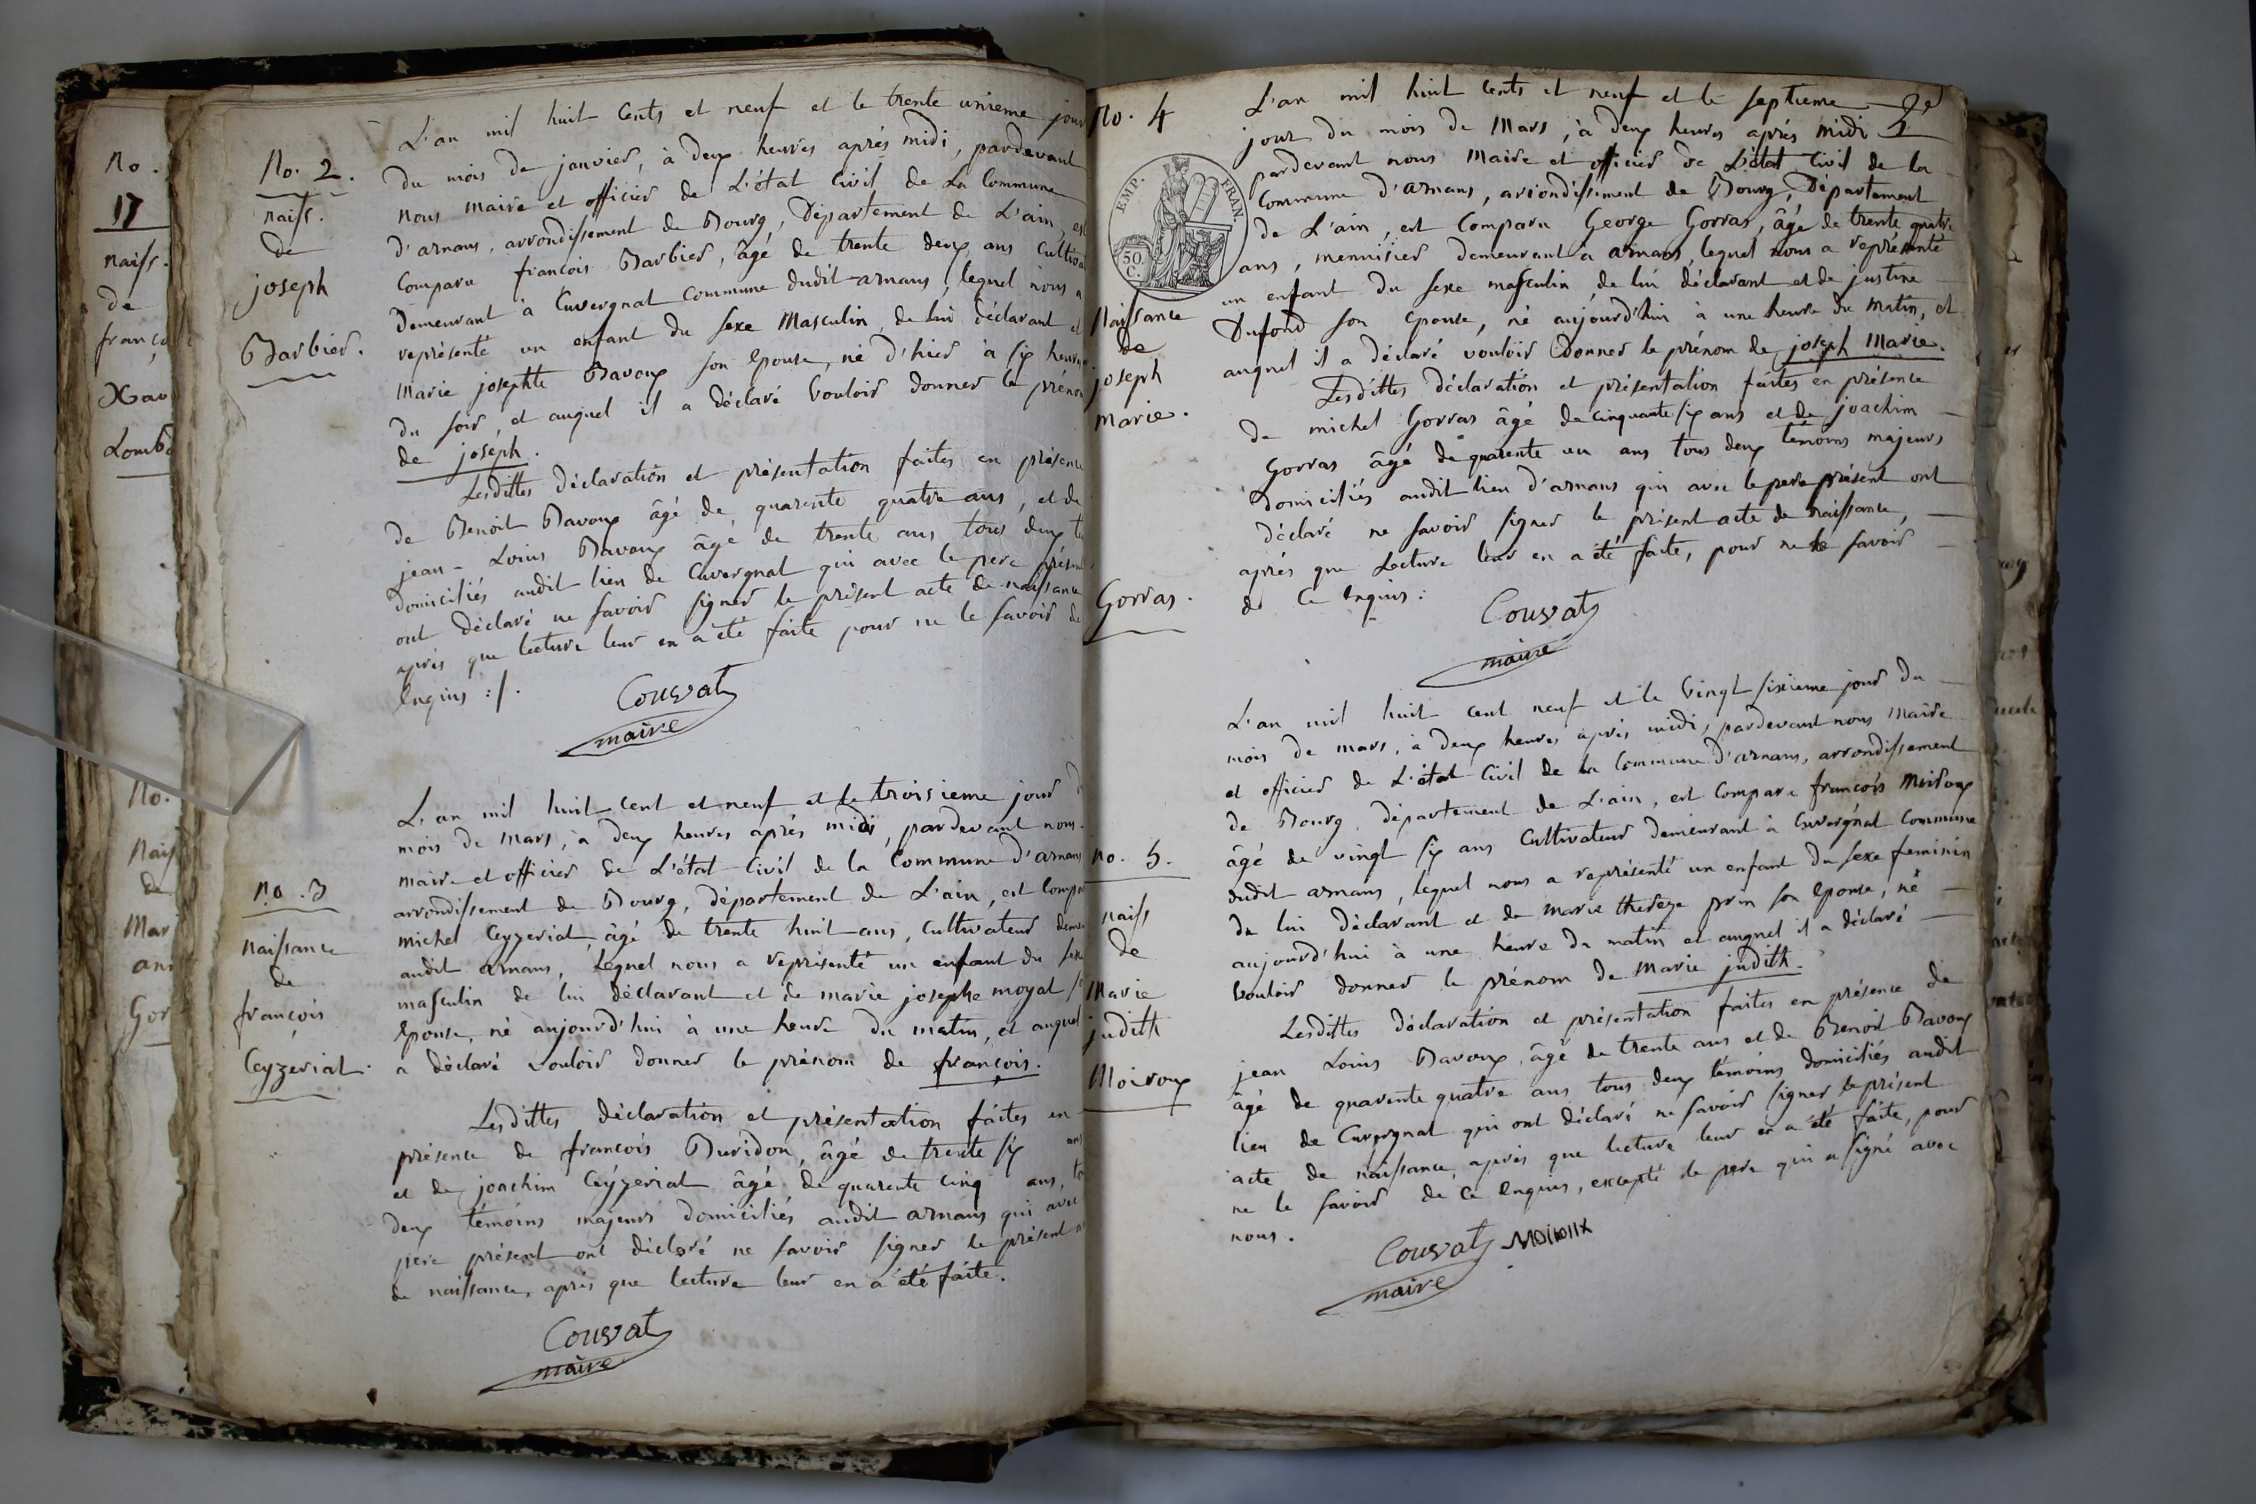 No.
17
naiss.
de
franço
Xav
Lomb
No.
Nais
de
Mar
ann
Gor
No. 2.
naiss.
de
joseph
Barbier.
L'an mil huit cents et neuf et le trente unieme jour
du mois de janvier, à deux heures aprés midi, pardevant
nous maire et officier de L'état Civil de La Commune
d'arnans, arrondissement de Bourg, Département de L'ain, est
Comparu françois Barbier, âgé de trente deux ans Cultiva
Demeurant à Cuvergnat Commune dudit arnans, lequel nous a
représenté un enfant du sexe Masculin, de lui déclarant et
Marie josephte Bavoux son Epouse, né d'hier à six heures
du soir, et auquel il a déclaré Vouloir donner le prénom
de joséph.
Lesdittes déclaration et présentation faites en présence
de Benoit Bavoux âgé de quarente quatre ans, et de
jean-Louis Bavoux âgé de trente ans tous deux té
domiciliés audit lieu de Cuvergnat qui avec le pere présent
ont déclaré ne savoir signer le présent acte de naissance
aprés que lecture leur en a été faite pour ne le savoir de
Enquis :/.
Couvat
maire
no. 3
naissance
de
françois
Ceyzeriat.
L'an mil huit cent et neuf et le troisieme jour d
mois de mars, à deux heures aprés midi, pardevant nous
maire et officier de L'état Civil de la Commune d'arnans
arrondissement de Bourg, département de L'ain, est Compa
michel Ceyzeriat, âgé de trente huit ans, Cultivateur deme
audit arnans, Lequel nous a représenté un enfant du sexe
masculin de lui déclarant et de marie josephe moyat s
Epouse, né aujourd'hui à une heure du matin, et auquel
a déclaré vouloir donner le prénom de françois.
Lesdittes déclaration et présentation faites en
présence de françois Buridon, âgé de trente six ans
et de joachim Ceyzeriat âgé de quarente cinq ans, to
deux témoins majeurs domiciliés audit arnans qui avec
pere présent ont déclaré ne savoir signer le présent a
de naissance, aprés que lecture leur en a été faite.
Couvat
maire
No. 4
EMP. FRAN.
50
C.
Naissance
de
joseph
marie.
Gorras.
2e
L'an mil huit cents et neuf et le septieme
jour du mois de Mars, à deux heures aprés midi
pardevant nous Maire et officier de L'état Civil de la
Commune d'arnans, arrondissement de Bourg, Département
de L'ain, est Comparu George Gorras, âgé de trente quatre
ans, menuisier demeurant à arnans, lequel nous a représenté
un enfant du sexe masculin, de lui déclarant et de justine
Dufond son Epouse, né aujourd'hui à une heure du matin, et
auquel il a déclaré vouloir donner le prénom de joseph Marie.
Lesdittes déclaration et présentation faites en présence
de michel Gorras âgé de cinquante six ans et de joachim
Gorras âgé de quarente un ans tous deux témoins majeurs
domiciliés audit lieu d'arnans qui avec le pere présent ont
déclaré ne savoir signer le présent acte de naissance,
aprés que Lecture leur en a été faite, pour ne le savoir
de Ce Enquis :
Couvat
maire
no. 5.
naiss
de
Marie
judith
Moiroux
L'an mil huit cent neuf et le Vingt sixieme jour du
mois de mars, à deux heures aprés midi, pardevant nous Maire
et officier de L'état Civil de la Commune d'arnans, arrondissement
de Bourg, département de L'ain, est Comparu françois Moiroux
âgé de vingt six ans Cultivateur demeurant à Cuvergnat Commune
dudit arnans, lequel nous a représenté un enfant du sexe feminin
de lui déclarant et de Marie thereze prin son Epouse, né
aujourd'hui à une heure du matin et auquel il a déclaré
Vouloir donner le prénom de Marie judith.
Lesdittes déclaration et présentation faites en présence de
jean Louis Bavoux, âgé de trente ans et de Benoit Bavoux
âgé de quarente quatre ans tous deux témoins domiciliés audit
lieu de Cuvergnat qui ont déclaré ne savoir signer le présent
acte de naissance, aprés que lecture leur en a été faite, pour
ne le savoir de Ce Enquis, excepté le pere qui a signé avec
nous.
Couvat Moiroux
maire